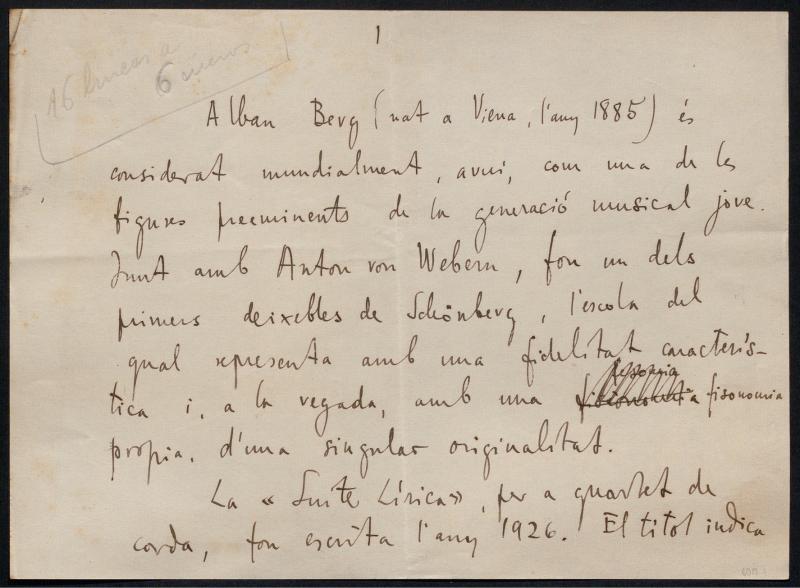 1
16 línees a
6 cíceros
Alban Berg (nat a Viena, l'any 1885) és
considerat mundialment, avui, com una de les
figures preeminents de la generació musical jove.
Junt amb Anton von Webern, fou un dels
primers deixebles de Schönberg, l'escola del
qual representa amb una fidelitat caracterís-
tica i, a la vegada, amb una fisonomia
pròpia, d'una singular originalitat.
La «Suite Lírica», per a quartet de
corda, fou escrita l'any 1926. El títol indica